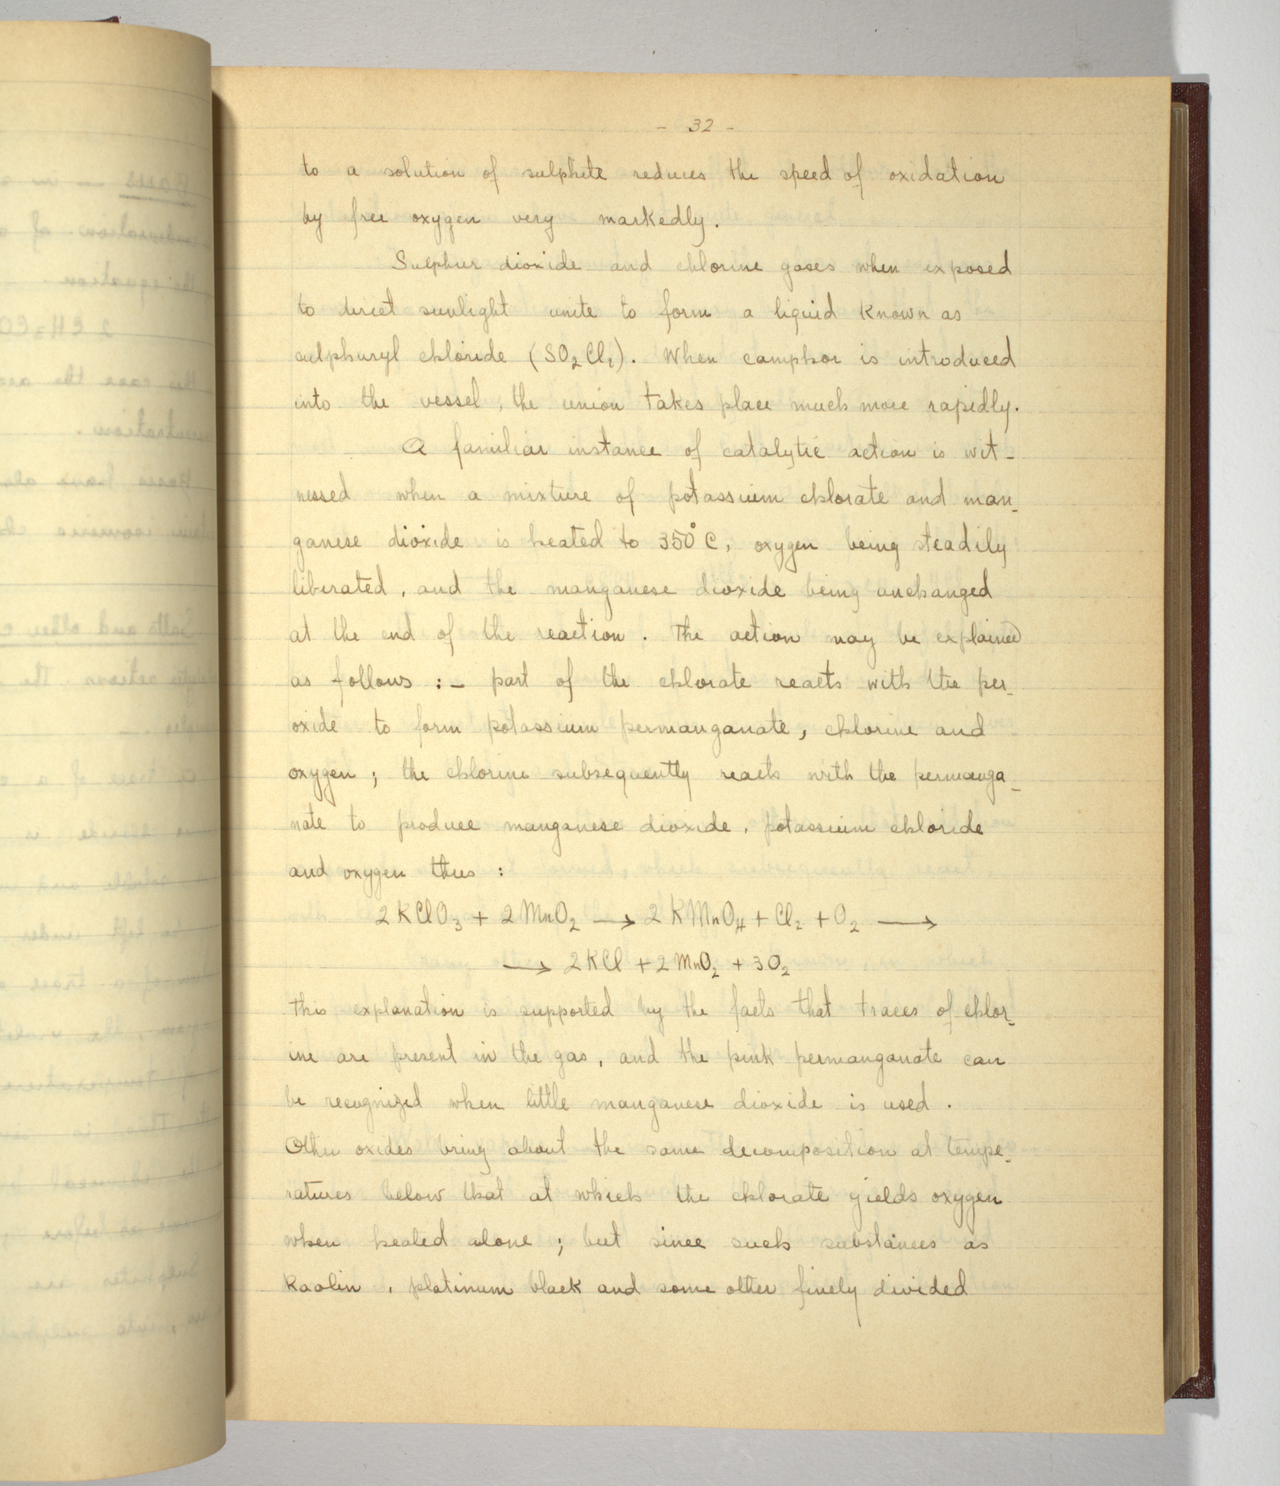 - 32 -
to a solution of sulphite reduces the speed of oxidation
by free oxygen very markedly.
Sulphur dioxide and chlorine gases when exposed
to direct sunlight unite to form a liquid known as
sulphuryl chloride (SO₂Cl₂). When camphor is introduced
into the vessel, the union takes place much more rapidly.
A familiar instance of catalytic action is wit-
nessed when a mixture of potassium chlorate and man-
ganese dioxide is heated to 350°C, oxygen being steadily
liberated, and the manganese dioxide being unchanged
at the end of the reaction. The action may be explained
as follows :- part of the chlorate reacts with the per-
oxide to form potassium permanganate, chlorine and
oxygen ; the chlorine subsequently reacts with the permanga-
nate to produce manganese dioxide, potassium chloride
and oxygen thus :
2 KClO₃ + 2 MnO₂ ⟶ 2 KMnO₄ + Cl₂ + O₂ ⟶
⟶ 2 KCl + 2 MnO₂ + 3O₂
This explanation is supported by the facts that traces of chlor-
ine are present in the gas, and the pink permanganate can
be recognized when little manganese dioxide is used.
Other oxides bring about the same decomposition at tempe-
ratures below that at which the chlorate yields oxygen
when heated alone ; but since such substances as
Kaolin, platinum black and some other finely divided